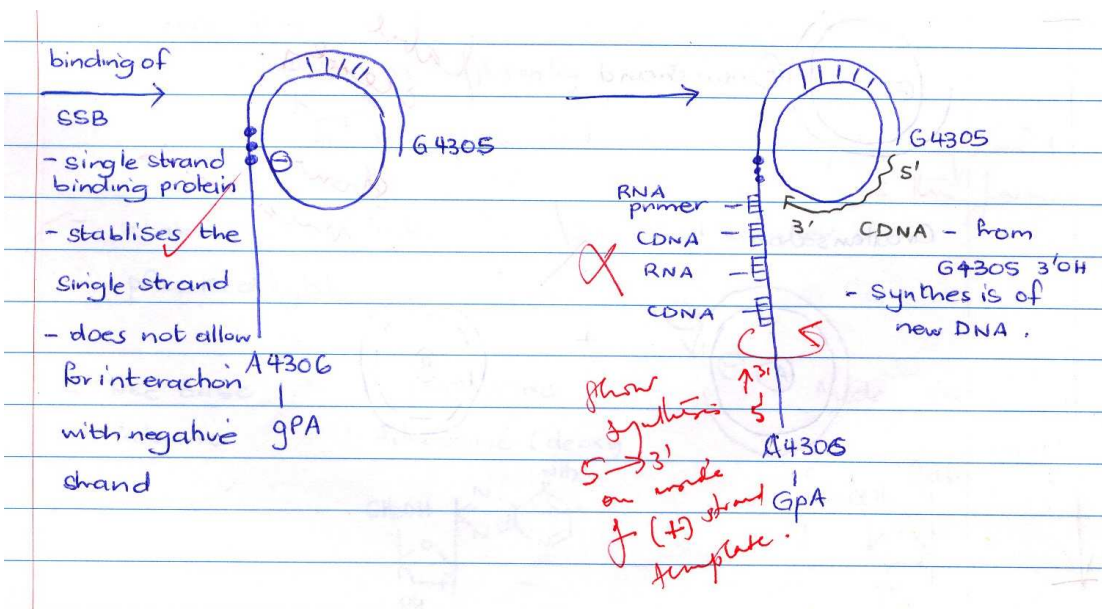 binding of
SSB
- single strand
binding protein
- stablises the
single strand
- does not allow
for interaction
with negative
strand
G4305
A4306
gPA
G4305
5'
3'
CDNA - from
G4305 3'OH
- Synthesis of
new DNA.
RNA
primer -
CDNA -
RNA -
CDNA -
A4306
GpA
show
synthesis
5 → 3'
on inside
of (+) strand
template.
3'
5'